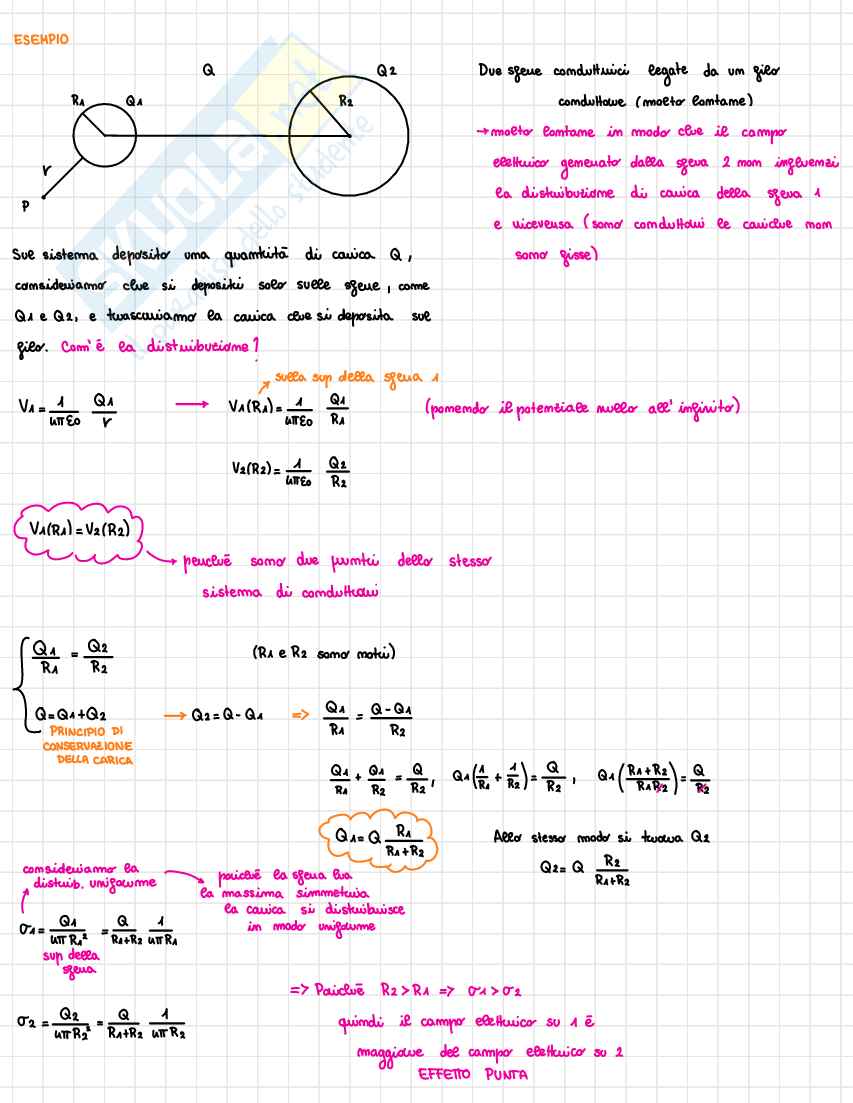 ESEMPIO
Q
R1 Q1
Q2
R2
r
P
Due sfere conduttrici legate da un filo
conduttore (molto lontane)
→ molto lontane in modo che il campo
elettrico generato dalla sfera 2 non influenzi
la distribuzione di carica della sfera 1
e viceversa (sono conduttori le cariche non
sono fisse)
SKUOLA.net
il paradiso dello studente
Sul sistema deposito una quantità di carica Q,
consideriamo che si depositi solo sulle sfere, come
Q1 e Q2, e trascuriamo la carica che si deposita sul
filo. Com'è la distribuzione?
sulla sup della sfera 1
V1 = 1/4πε0 Q1/r → V1(R1) = 1/4πε0 Q1/R1 (ponendo il potenziale nullo all'infinito)
V2(R2) = 1/4πε0 Q2/R2
V1(R1) = V2(R2)
perché sono due punti dello stesso
sistema di conduttori
Q1/R1 = Q2/R2 (R1 e R2 sono noti)
Q = Q1 + Q2 → Q2 = Q - Q1 => Q1/R1 = Q - Q1/R2
PRINCIPIO DI
CONSERVAZIONE
DELLA CARICA
Q1/R1 + Q1/R2 = Q/R2 , Q1(1/R1 + 1/R2) = Q/R2 , Q1(R1+R2/R1R2) = Q/R2
Q1 = Q R1/R1+R2
Allo stesso modo si trova Q2
Q2 = Q R2/R1+R2
consideriamo la
distrib. uniforme
poiché la sfera ha
la massima simmetria
la carica si distribuisce
in modo uniforme
σ1 = Q1/4πR1² = Q/R1+R2 1/4πR1
sup della
sfera
=> Poiché R2 > R1 => σ1 > σ2
σ2 = Q2/4πR2² = Q/R1+R2 1/4πR2
quindi il campo elettrico su 1 è
maggiore del campo elettrico su 2
EFFETTO PUNTA